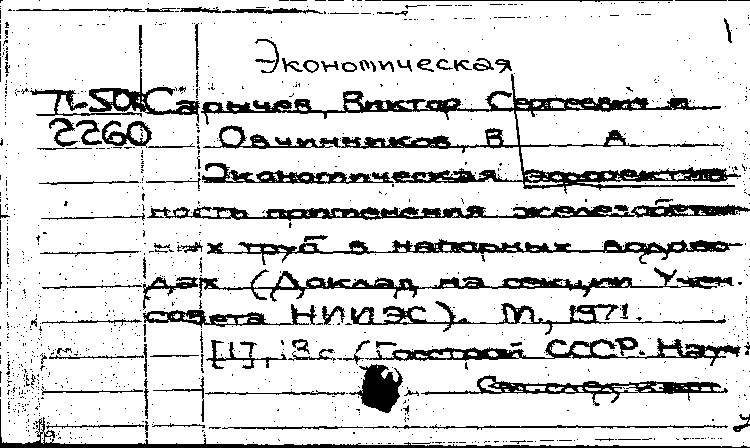 Экономическая
71-50K Сарычев, Виктор Сергеевич и
2260 Овчинников, В А
Экономическая эффектив-
ность применения железобетон-
ных труб в напорных водово-
дах (Доклад на секции Учен.
совета НИИЭС). М., 1971.
[1], 18 с (Госстрой СССР. Науч
См. след. карт.